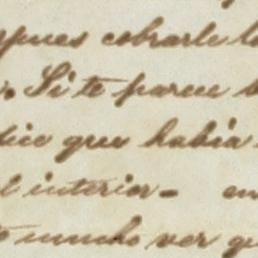 spues cobrarle lo
. Si te parece b
dice que había
l interior= en
mucho ver q